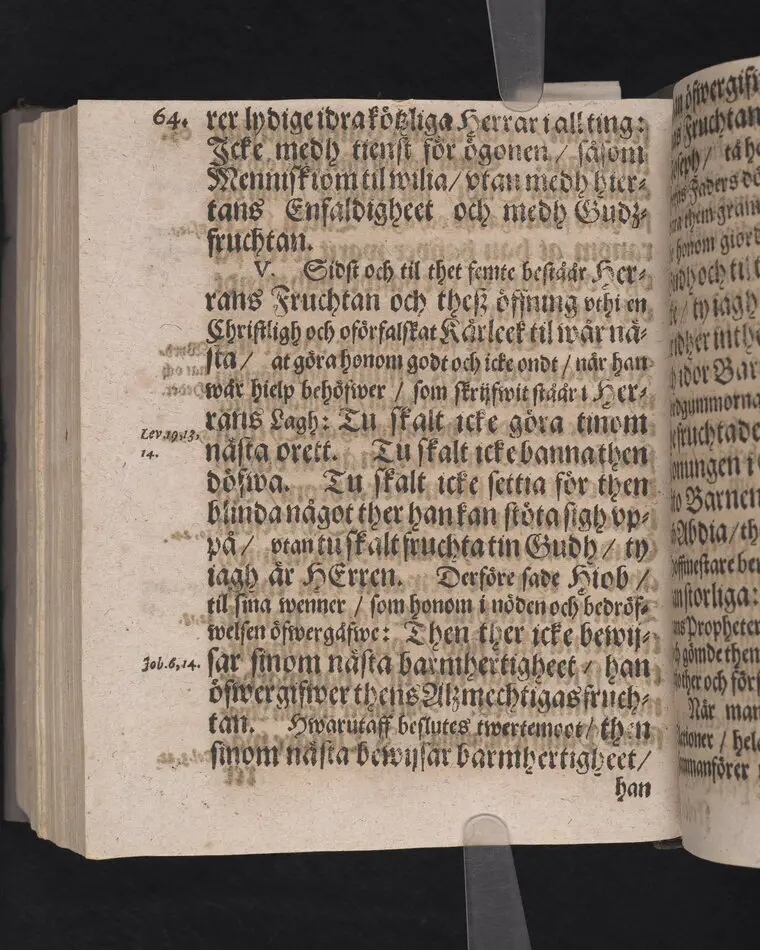 64.
rer lydige idra kötzliga Herrar i all ting:
Jcke medh tienst för ögonen / såsom
Menniskiom til wilia / vtan medh hier-
tans Enfaldigheet och medh Gudz-
fruchtan.
V. Sidst och til thet femte beståår Her-
rans Fruchtan och thesz öffning vthi en
Christligh och oförfalskat Kärleek til wår nä-
sta / at göra honom godt och icke ondt / når han
wår hielp behöfwer / som skrijfwit ståår i Her-
rans Lagh: Tu skalt icke göra tinom
Lev. 19. 13,
14.
nästa orett. Tu skalt icke banna then
döfwa. Tu skalt icke settia för then
blinda något ther han kan stöta sigh vp-
på / vtan tu skalt fruchta tin Gudh / ty
iagh är HErren. Derföre sade Hiob /
til sina wenner / som honom i nöden och bedröf-
welsen öfwergåfwe: Then ther icke bewij-
Job. 6, 14.
sar sinom nästa barmhertigheet / han
öfwergifwer thens Alzmechtigas fruch-
tan. Hwarutaff beslutes twertemoot / then
sinom nästa bewijsar barmhertigheet /
han
öfwergif
Fruchtan
tå h
Faders dö
them gräm
honom giord
/ ty iagh
idher inthe
idor Bar
dgummorna
fruchtade
nungen i
Barnen
Abdia / th
Propheter
gömde then
och förs
När man
/ hel